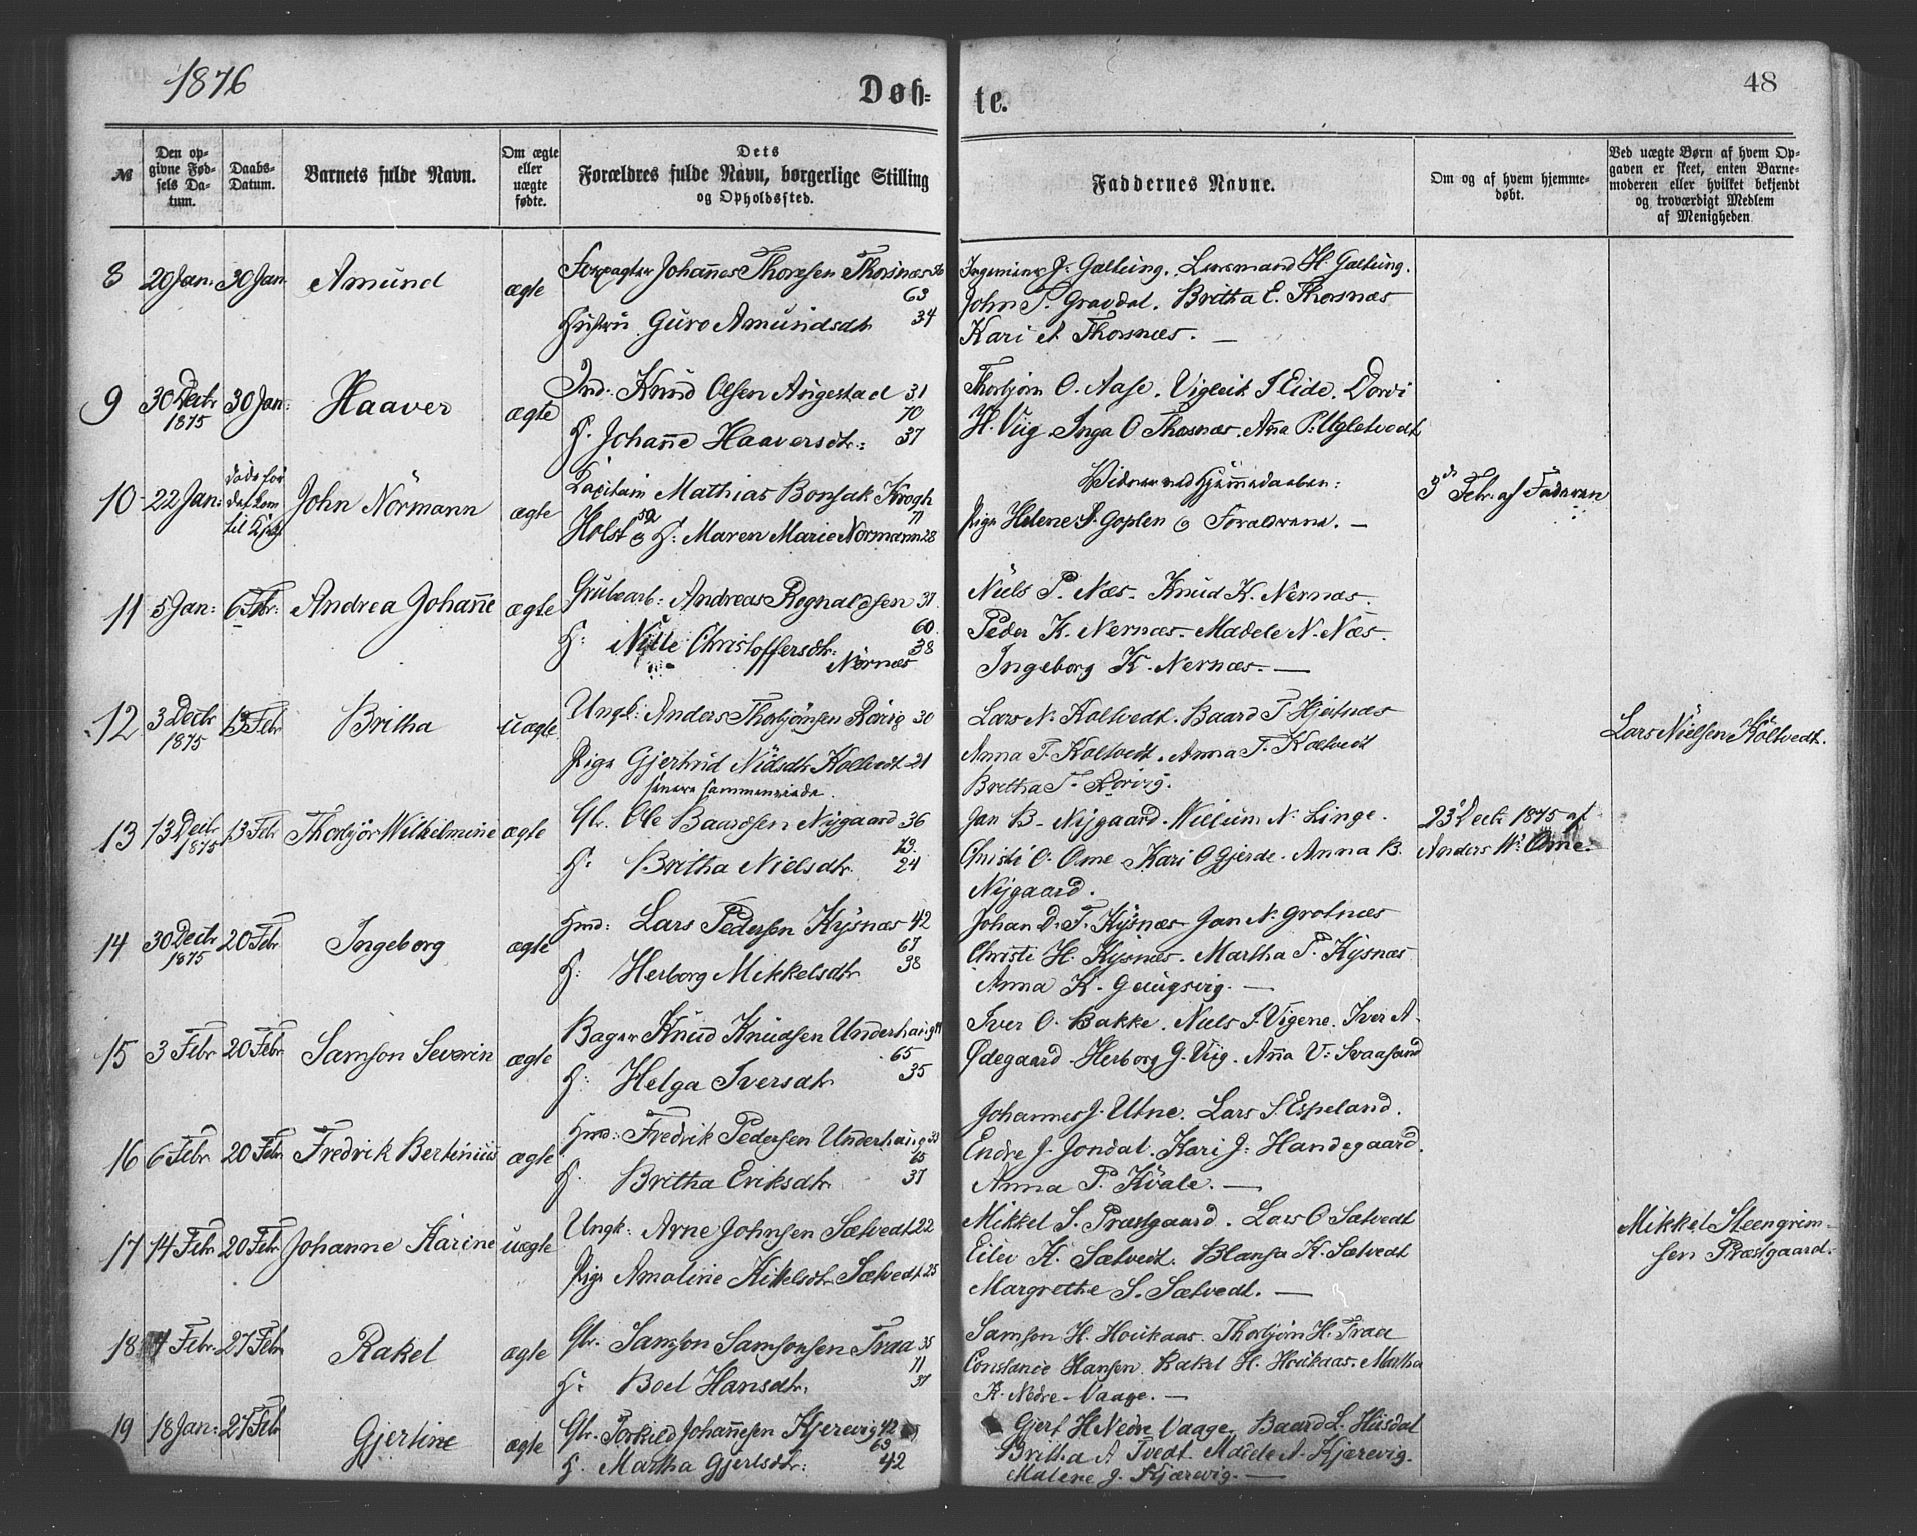 1876
Døb-
te.
48
№
Den op-
givne Fød-
sels Da-
tum.
Daabs-
Datum.
Barnets fulde Navn.
Om ægte
eller
uægte
fødte.
Dets
Forældres fulde Navn, borgerlige Stilling
og Opholdssted.
Faddernes Navne.
Om og af hvem hjemme-
døbt.
Ved uægte Børn af hvem Op-
gaven er skeet, enten Barne-
moderen eller hvilket bekjendt
og troværdigt Medlem
af Menigheden
8 20 Jan: 30 Jan: Amund ægte
Forpagter Johannes Thorsen Thorsnæs
63
Hustru Guro Amundsdtr 34
Ingenieur J. Galtung. Lensmand H. Galtung.
John T. Gravdal. Britha E. Thorsnæs
Kari A Thorsnæs. —
9 30 Decbr 1875 30 Jan: Haaver ægte
Ind. Knud Olsen Augestad 31
70
H. Johanne Haaversdtr: 37
Thorbjørn O. Aase. Vigleik I Eide. Dordi
H. Viig. Inga O Thosnæs. Anna P. Ugletvedt
10 22 Jan: døde før det kom til Kirke John Normann ægte
Kapitain Mathias Bonsak Krogh
71
Holst 52 & H: Maren Marie Normann 28
Vidner ved Hjemmedaaben:
Pige Helene S. Goplen & Forældrene. —
3d Febr. af Faderen
11 5 Jan: 6 Febr: Andrea Johanne ægte
Grubearb: Andreas Regnaldsen 37.
60.
H: Nille Christoffersdtr: 38
Nernæs
Niels P. Næs. Knud K. Nernæs.
Peder K. Nernæs. Madele N. Næs.
Ingeborg K. Nernæs. —
12 3 Decbr 1875 13 Febr Britha uægte
Ungk: Anders Thorbjørnsen Rørvig 30
Pige Gjertrud Nilsdtr Koltvedt 21
senere sammenviede.
Lars N. Koltvedt. Baard T Hjertnæs
Anna T. Koltvedt. Anna T. Koltvedt
Britha T. Rørvig.
Lars Nielsen Koltvedt.
13 13 Decbr 1875 13 Febr Thorbjør Wilhelmine ægte
Gbr. Ole Baardsen Nygaard 36
73.
H: Britha Nielsdtr 24
Jan B. Nygaard. Willum N. Linge.
Christi O. Ome. Kari O Gjerde. Anna B.
Nygaard.
23 Decbr 1875 af
Anders W. Ome.
14 30 Decbr 1875 20 Febr Ingeborg ægte
Hmd: Lars Pedersen Kysnæs 42
67
H: Herborg Mikkelsdtr 38
Johan D. T. Kysnæs. Jan N. Grotnæs
Christi H. Kysnæs. Martha P. Kysnæs
Anna K. Gaugsvig. —
15 3 Febr 20 Febr Samson Severin ægte
Bager Knud Knudsen Underhaug
65
H: Helga Iversdtr 35
Iver O. Bakke. Niels I. Vigene. Iver A.
Ødegaard. Herborg G. Viig. Anna V: Svaasand
16 6 Febr 20 Febr Fredrik Bertinius ægte
Hmd: Fredrik Pedersen Underhaug 33
H. Britha Eriksdtr 37
Johannes J. Utne. Lars S. Espeland.
Endre J. Jondal. Kari J. Handegaard.
Anna P. Kvale. —
17 14 Febr 20 Febr Johanne Karine uægte
Ungk: Arne Johnsen Sætvedt 22
Pige Amaline Kittelsdtr Sætvedt 25
Mikkel S. Præstgaard. Lars O Sætvedt
Eilev K. Sætvedt. Blansa K. Sætvedt
Margrethe S. Sætvedt. —
Mikkel Steengrim-
sen Præstgaard.
18 4 Febr. 27 Febr Rakel ægte
Gbr. Samson Samsonsen Traa 35
71
H: Boel Hansdtr. 37
Samson H. Houkaas. Thorbjørn H. Traa
Constance Hansen. Rakel H. Houkaas. Martha
K. Nedre-Vaage. —
19 18 Jan: 27 Febr Gjertine ægte
Gbr. Torkild Johannesen Kjerevig 42
63
H. Martha Gjertsdtr: 42
Gjert H Nedre Vaage. Baard L. Husdal
Britha A Tvedt. Madele A. Kjærevig.
Malene J. Kjærevig. —